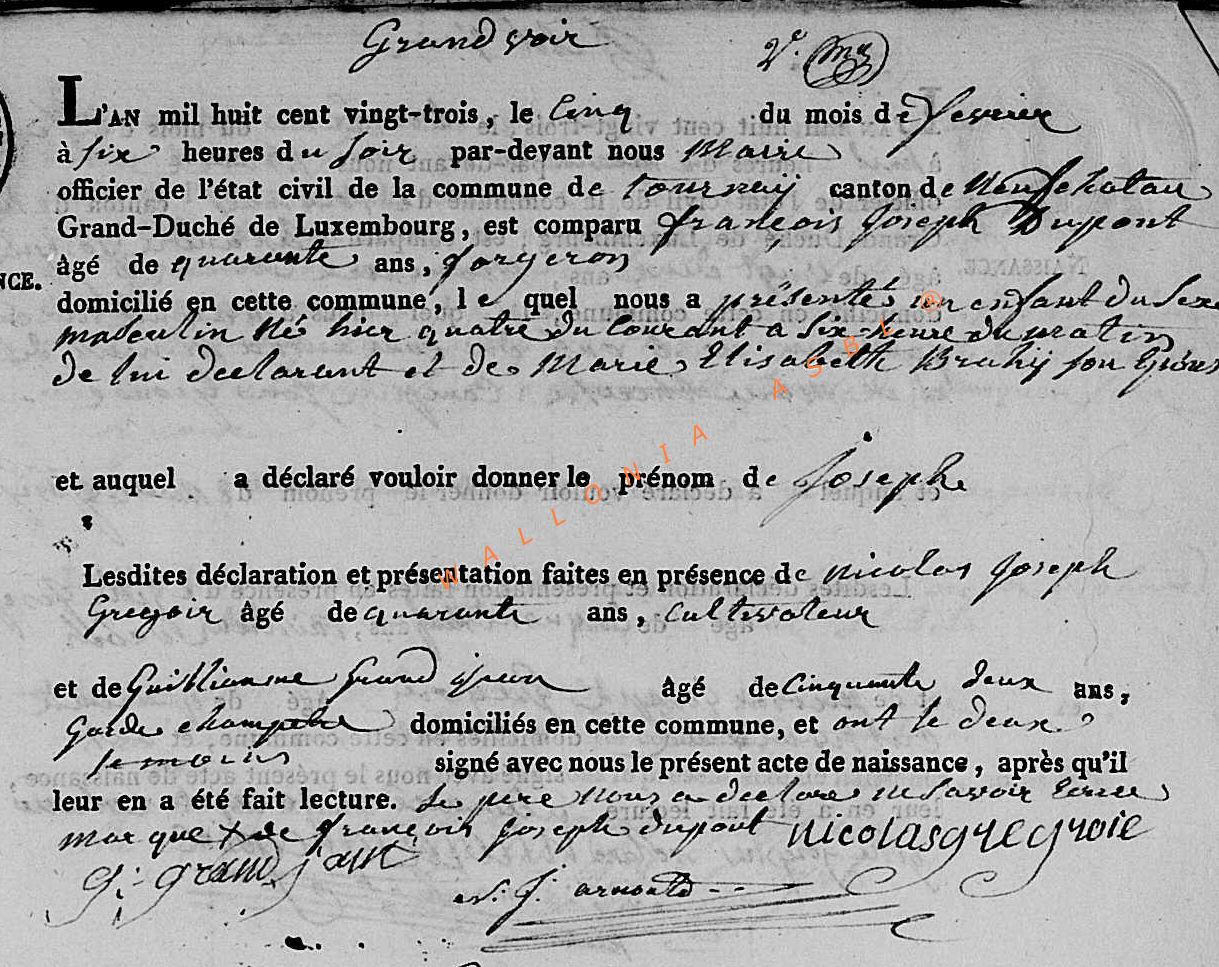 Grandvoir 2e.
L'AN mil huit cent vingt-trois, le Cinq du mois de fevrier
à six heures du soir par-devant nous Maire
officier de l'état civil de la commune de tournay canton de Neufchatau
Grand-Duché de Luxembourg, est comparu françois Joseph Dupont
âgé de quarante ans, forgeron
NCE.
domicilié en cette commune, le quel nous a présentés un enfant du Sexe
masculin Nés hier quatre du Courant a six heure du matin
de lui declarant et de Marie Elisabeth Bruhy son
et auquel a déclaré vouloir donner le prénom de Joseph
Lesdites déclaration et présentation faites en présence de nicolas Joseph
Gregoir âgé de quarante ans, cultivateur
et de Guilliaume Grand jean âgé de Cinquante deux ans,
garde champetre domiciliés en cette commune, et ont le deux
temoins signé avec nous le présent acte de naissance, après qu'il
leur en a été fait lecture. le pere nous a declare ne savoir Ecrire
marque x de françois Joseph dupont nicolasgregroie
g: grand jean
N: J: arnould
WALLONIA ASBL @